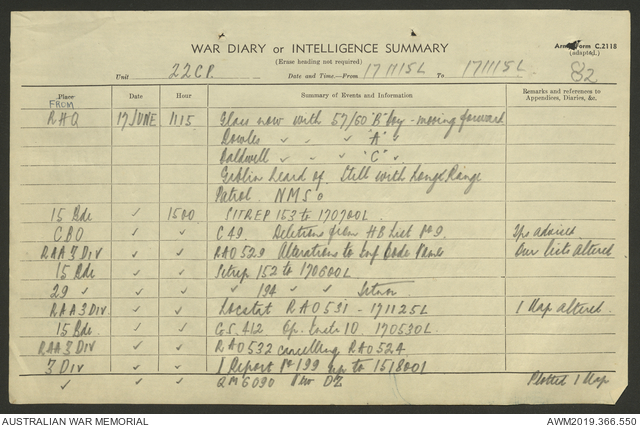 WAR DIARY or INTELLIGENCE SUMMARY
Army Form C.2118
(adapted.)
(Erase heading not required)
82
Unit 22 C.P. Date and Time.—From 171115L To 171115L.
Place Date Hour Summary of Events and Information Remarks and references to Appendices, Diaries, &c.
FROM
RHQ 17 JUNE 1115 Glass now with 57/60 "B" Coy - moving forward
Bowles " " "A" "
Caldwell " " "C" "
Giblin heard of. Still with Long Range
Patrol. NMS.
15 Bde ✓ 1500 SITREP 153 to 170700L
CBO ✓ ✓ C49. Deletions from HB List No 9 advised
RAA 3 DIV ✓ ✓ RA0529 Alterations to Inf Code Names Our lists altered
15 Bde. ✓ ✓ Sitrep 152 to 170600L
29 " ✓ ✓ " 194 "
RAA 3 DIV. ✓ ✓ Locstat RA0531 - 171125L 1 Map altered.
15 Bde. ✓ ✓ GS 412 Op. 10. 170530L.
RAA 3 DIV ✓ ✓ RA0532 cancelling RA0524
3 DIV ✓ ✓ 1 Report No 199 up to 151800L
✓ ✓ ✓ QM6090 New DZ Plotted 1 Map
AUSTRALIAN WAR MEMORIAL AWM2019.366.550